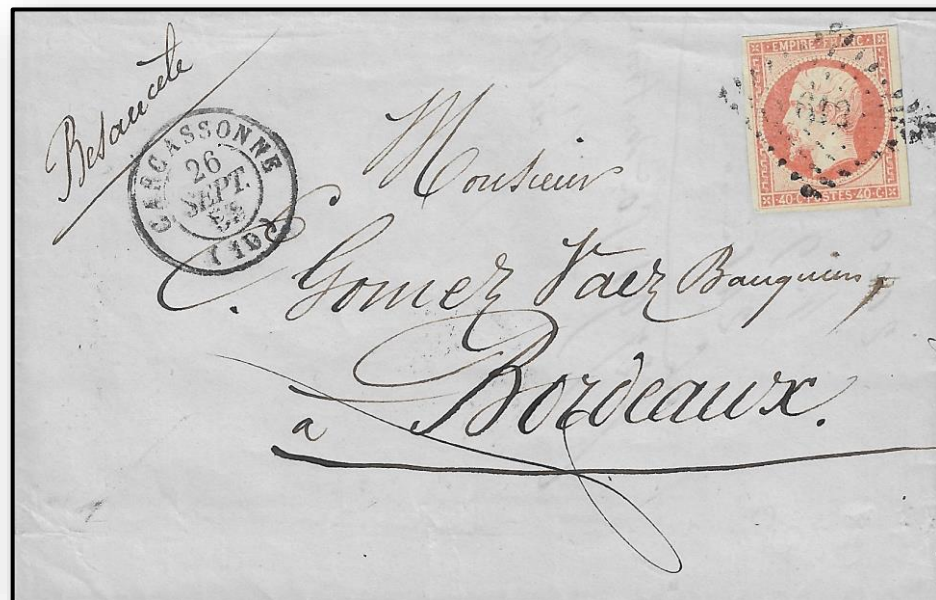 CARCASSONNE
26
SEPT.
(10)
EMPIRE FRANC
40·C·POSTES 40·C
Monsieur
Gomez Vaez Banquiers
à Bordeaux.